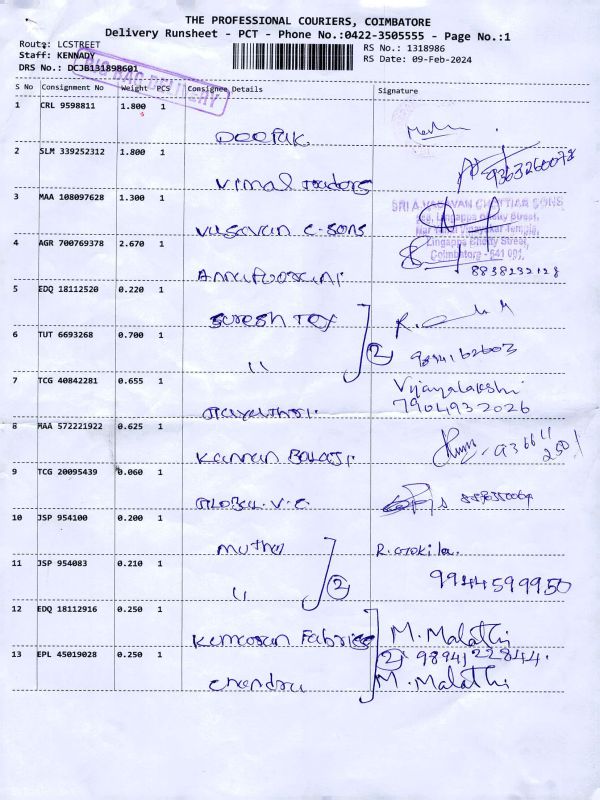 THE PROFESSIONAL COURIERS, COIMBATORE
Delivery Runsheet - PCT - Phone No.:0422-3505555 - Page No.:1
Route: LCSTREET
RS No.: 1318986
Staff: KENNADY
RS Date: 09-Feb-2024
DRS No.: DCJB131898601
BIG BAG DELIVERY
S No Consignment No Weight PCS Consignee Details Signature
1 CRL 9598811 1.800 1
DEEPAK
2 SLM 339252312 1.800 1
Vimal Traders 9363260078
3 MAA 108097628 1.300 1
SRI A VASAVAN CHETTIAR SONS
Lingappa Chetty Street,
Coimbatore - 641 001.
Vasavan & Sons
4 AGR 700769378 2.670 1
8838232128
Annapoorani
5 EDQ 18112520 0.220 1
Suresh Tex
6 TUT 6693268 0.700 1
2 9894162603
"
7 TCG 40842281 0.655 1
Vijayalakshi
7904932026
8 MAA 572221922 0.625 1
Kannan Balaji
9 TCG 20095439 0.060 1
10 JSP 954100 0.200 1
Muthu R. Kokila.
11 JSP 954083 0.210 1
" 2 9944599950
12 EDQ 18112916 0.250 1
Kumaran Fabrics M. Malathi
13 EPL 45019028 0.250 1
2 9894122844.
Chandru M. Malathi